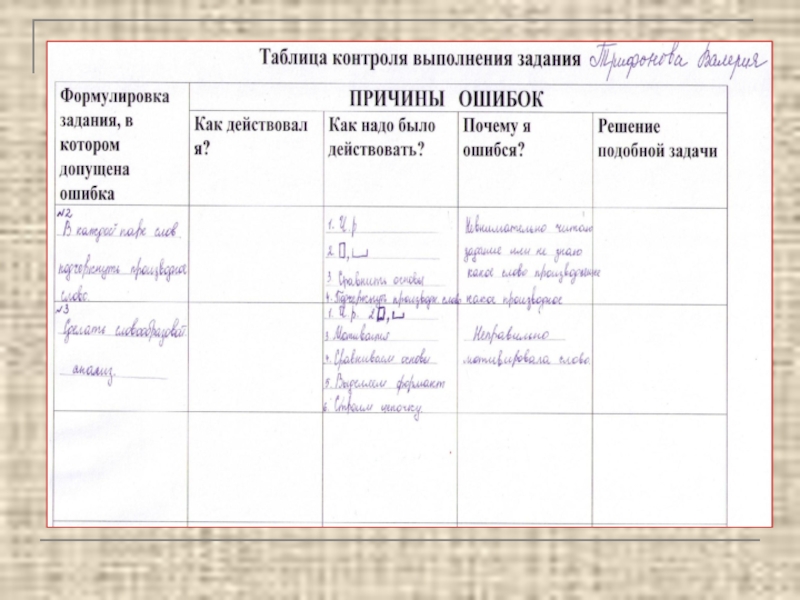 Таблица контроля выполнения задания Трифонова Валерия
Формулировка
задания, в
котором
допущена
ошибка
ПРИЧИНЫ ОШИБОК
Как действовал
я?
Как надо было
действовать?
Почему я
ошибся?
Решение
подобной задачи
№2
В каждой паре слов
подчеркнуть производное
слово.
1. И. р
2 □, ⌴
3 Сравнить основы
4. Подчеркнуть производн слово
Невнимательно читаю
задание или не знаю
какое слово производящее
какое производное
№3
Сделать словообразоват.
анализ.
1. И. р. 2 □, ⌴
3 Мотивация
4. Сравниваем основы
5. Выделяем формант
6. Строим цепочку.
Неправильно
мотивировала слово.